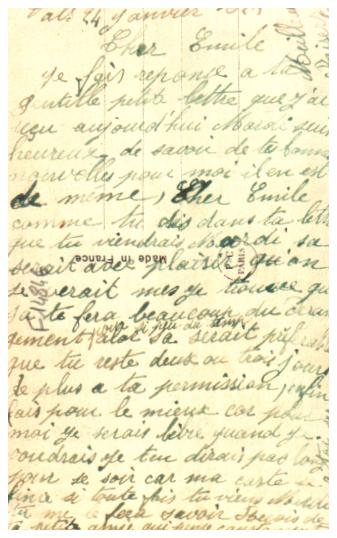 24 Janvier
Cher Emile
Je fais reponse a ta
gentille petite lettre que j'ai
reçu aujourd'hui Mardi suis
heureux de savoir de tes bonnes
nouvelles pour moi il en est
de même, Cher Emile
comme tu dis dans ta lettre
que tu viendrais Mardi sa
serait avec plaisir qu'on
se verait mes je trouve que
sa te fera beaucoup du
pour si peu du temps
gement alor sa serait
que tu reste deux ou trois jours
de plus a ta permission, enfin
fais pour le mieux car pour
moi je serais libre quand je
voudrais je ten dirais pas long
pour se soir car ma carte se
si toute fois tu viens
tu me le fera savoir
petite amie qui
Made in France
PARIS